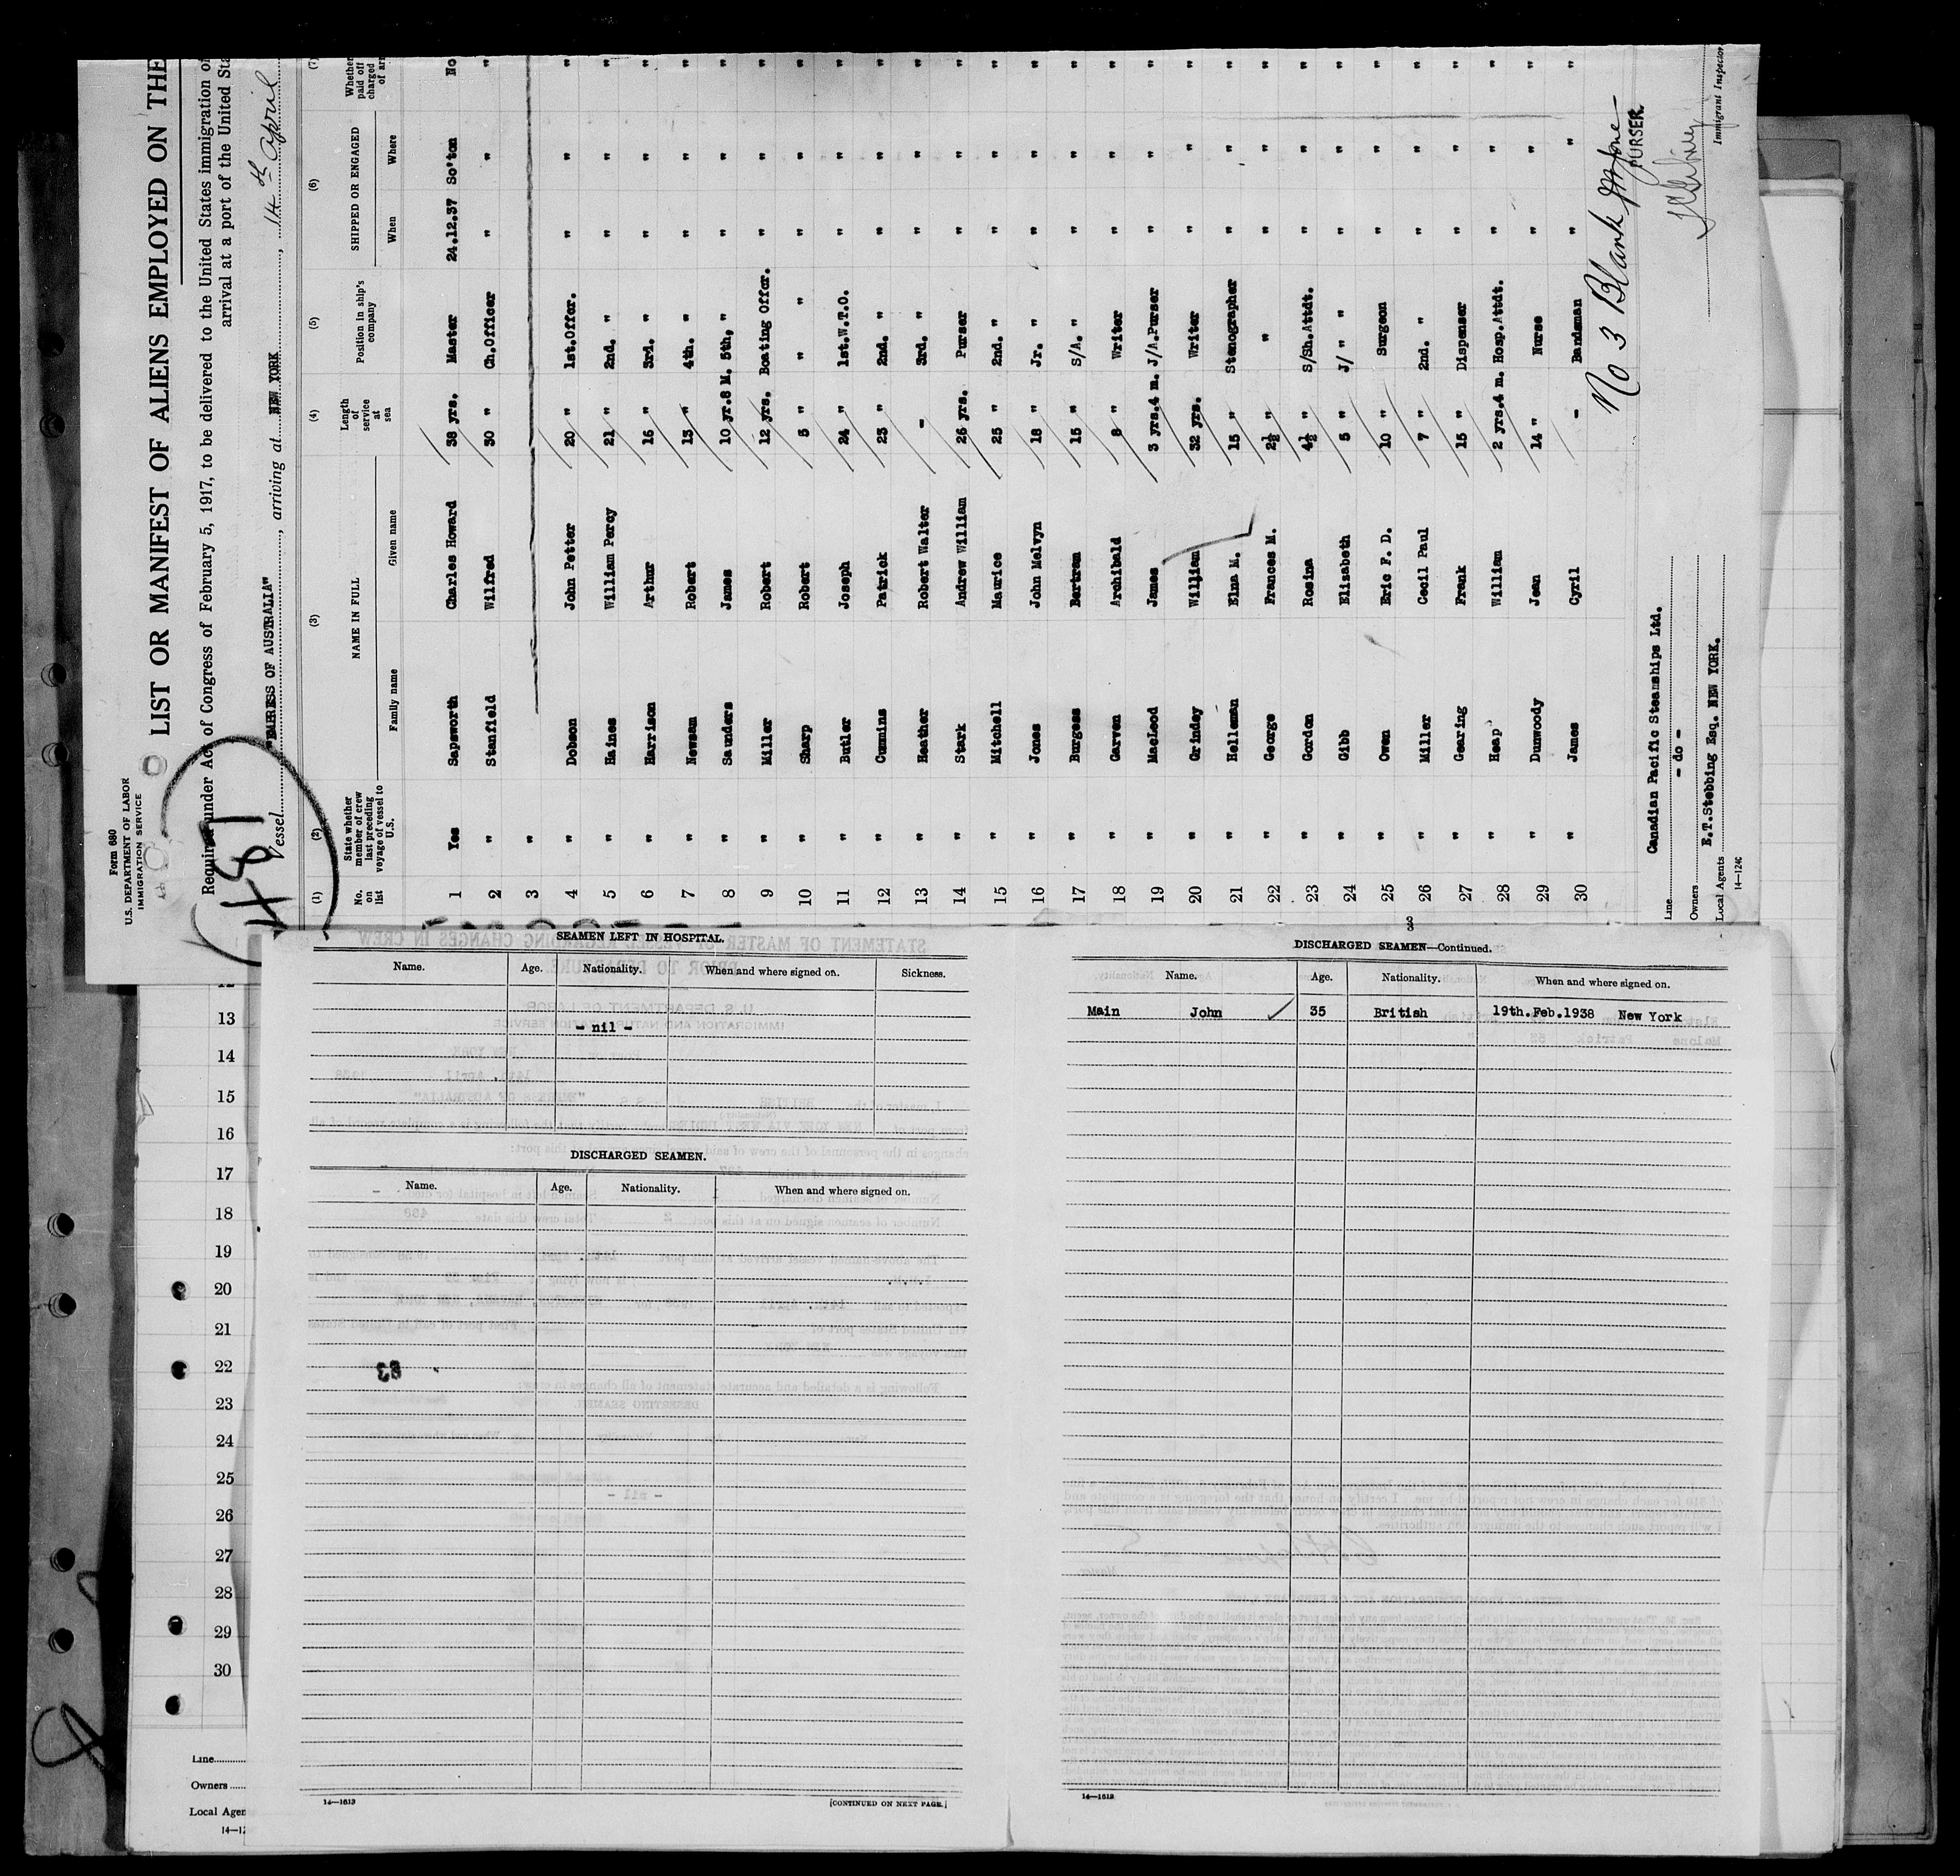 Form 680
U.S. DEPARTMENT OF LABOR
IMMIGRATION SERVICE
LIST OR MANIFEST OF ALIENS EMPLOYED ON THE
Required under Act of Congress of February 5, 1917, to be delivered to the United States immigration
arrival at a port of the United
Vessel "EMPRESS OF AUSTRALIA", arriving at NEW YORK, 14th April
(1) (2) (3) (4) (5) (6) (7)
No. on list State whether member of crew last preceding voyage of vessel to U.S. NAME IN FULL Family name Given name Length of service at sea Position in ship's company SHIPPED OR ENGAGED When Where
1 Yes Sapsworth Charles Howard 38 yrs. Master 24.12.37 So'ton No
2 " Stanfield Wilfred 30 " Ch.Officer " " "
3 "
4 " Dobson John Petter 20 " 1st.Offcr. " " "
5 " Haines William Percy 21 " 2nd. " " " "
6 " Harrison Arthur 16 " 3rd. " " " "
7 " Newsam Robert 13 " 4th. " " " "
8 " Saunders James 10 yr.8 M. 5th. " " " "
9 " Miller Robert 12 yrs. Boating Offcr. " " "
10 " Sharp Robert 5 " " " " " "
11 " Butler Joseph 24 " 1st.W.T.O. " " "
12 " Cummins Patrick 23 " 2nd. " " " "
13 " Heather Robert Walter - 3rd. " " " "
14 " Stark Andrew William 26 yrs. Purser " " "
15 " Mitchell Maurice 25 " 2nd. " " " "
16 " Jones John Melvyn 18 " Jr. " " " "
17 " Burgess Bertram 15 " S/A. " " " "
18 " Garven Archibald 8 " Writer " " "
19 " MacLeod James 3 yrs.4 m. J/A.Purser " " "
20 " Grindey William 32 yrs. Writer " " "
21 " Helleman Elna M. 15 " Stenographer " " "
22 " George Frances M. 2½ " " " " "
23 " Gordon Rosina 4½ " S/Sh.Attdt. " " "
24 " Gibb Elizabeth 5 " J/ " " " " "
25 " Owen Eric F. D. 10 " Surgeon " " "
26 " Miller Cecil Paul 7 " 2nd. " " " "
27 " Gearing Frank 15 " Dispenser " " "
28 " Heap William 2 yrs.4 m. Hosp.Attdt. " " "
29 " Dunwoody Jean 14 " Nurse " " "
30 " James Cyril - Bandsman " " "
No 3 Blank
PURSER
Line Canadian Pacific Steamships Ltd.
Owners - do -
Local Agents E.T.Stebbing Esq. NEW YORK.
Immigrant Inspector
14-124C
SEAMEN LEFT IN HOSPITAL.
Name. Age. Nationality. When and where signed on. Sickness.
- nil -
DISCHARGED SEAMEN.
Name. Age. Nationality. When and where signed on.
14—1613
[CONTINUED ON NEXT PAGE.]
3
DISCHARGED SEAMEN—Continued.
Name. Age. Nationality. When and where signed on.
Main John 35 British 19th.Feb.1938 New York
14—1613
13
14
15
16
17
18
19
20
21
22
23
24
25
26
27
28
29
30
Line
Owners
Local Agen